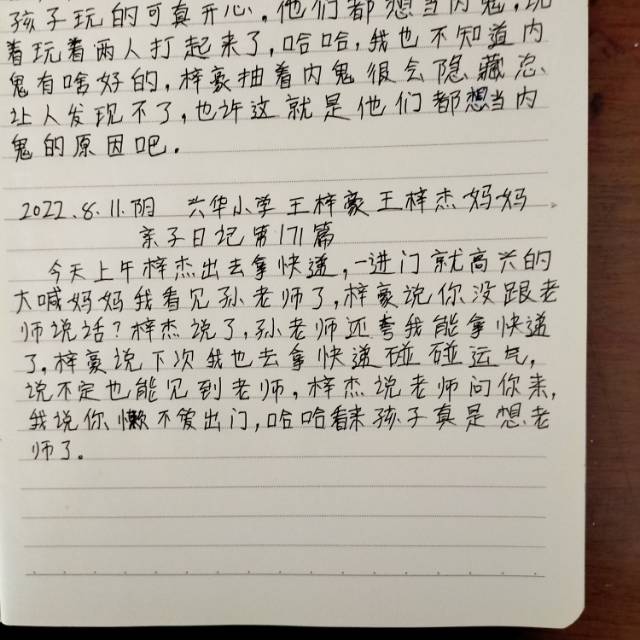 孩子玩的可真开心。他们都想当内鬼,玩
着玩着两人打起来了,哈哈,我也不知道内
鬼有啥好的,梓豪抽着内鬼很会隐藏总
让人发现不了,也许这就是他们都想当内
鬼的原因吧。
2022.8.11.阴 兴华小学王梓豪王梓杰妈妈
亲子日记第171篇
今天上午梓杰出去拿快递,一进门就高兴的
大喊妈妈我看见孙老师了,梓豪说你没跟老
师说话?梓杰说了,孙老师还夸我能拿快递
了。梓豪说下次我也去拿快递碰碰运气,
说不定也能见到老师,梓杰说老师问你来,
我说你懒不爱出门,哈哈看来孩子真是想老
师了。